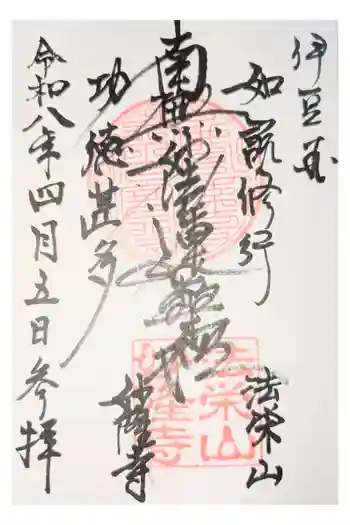 伊豆
如説修行
法栄山
南無妙法蓮華経
功徳甚多
妙隆寺
令和八年四月五日参拝
法栄山
妙隆寺